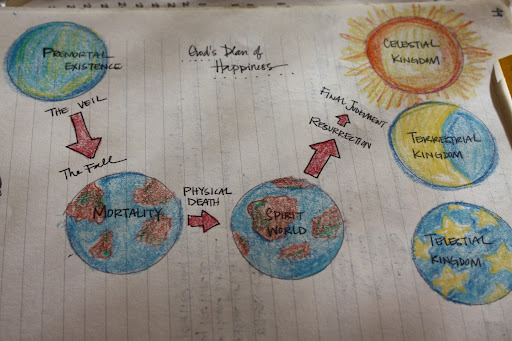 PREMORTAL
EXISTENCE
God's Plan of
Happiness
CELESTIAL
KINGDOM
THE VEIL
The Fall
MORTALITY
PHYSICAL
DEATH
SPIRIT
WORLD
RESURRECTION
FINAL JUDGMENT
TERRESTRIAL
KINGDOM
TELESTIAL
KINGDOM